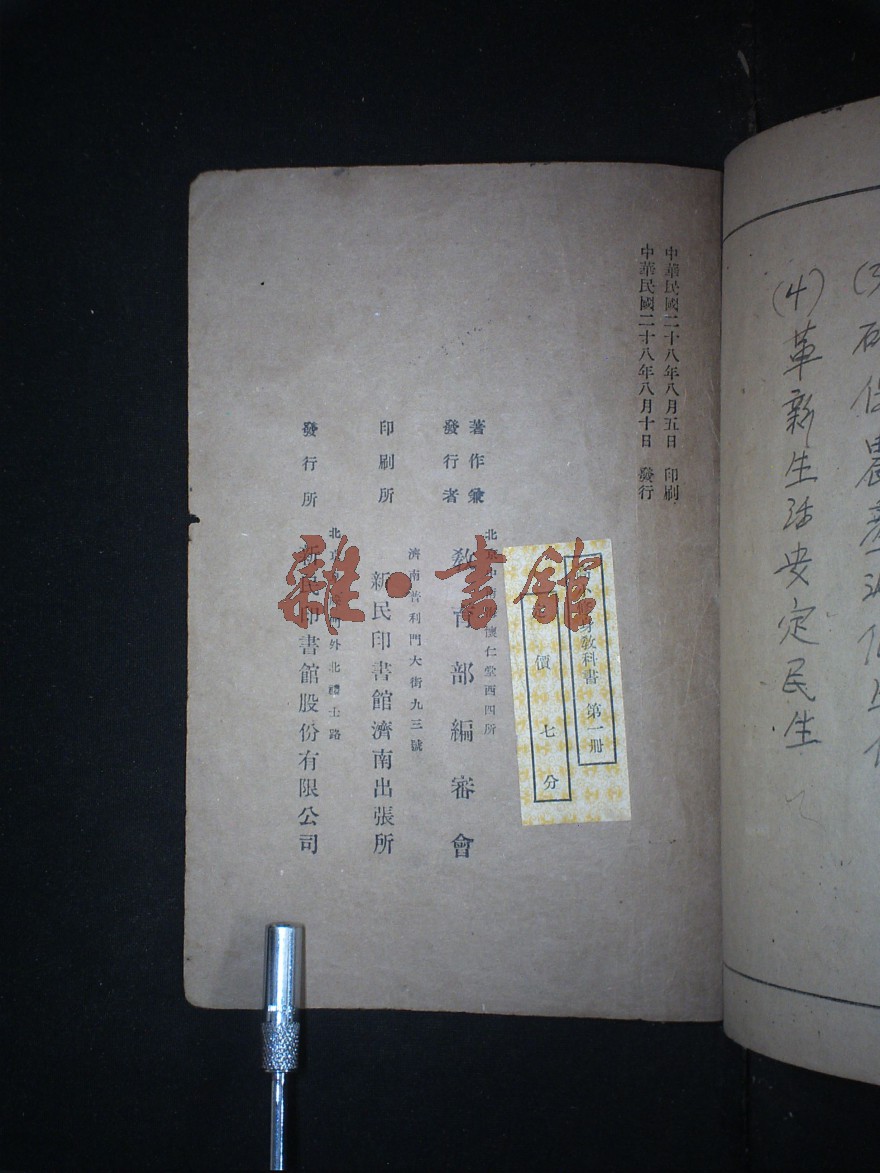 (4)革新生活安定民生
中華民國二十八年八月五日 印刷
中華民國二十八年八月十日 發行
身教科書 第一冊
價 七 分
著作兼
發行者
懷仁堂西四所
教育部編審會
印刷所
濟南普利門大街九三號
新民印書館濟南出張所
發行所
外北禮士路
新民印書館股份有限公司
雜·書館